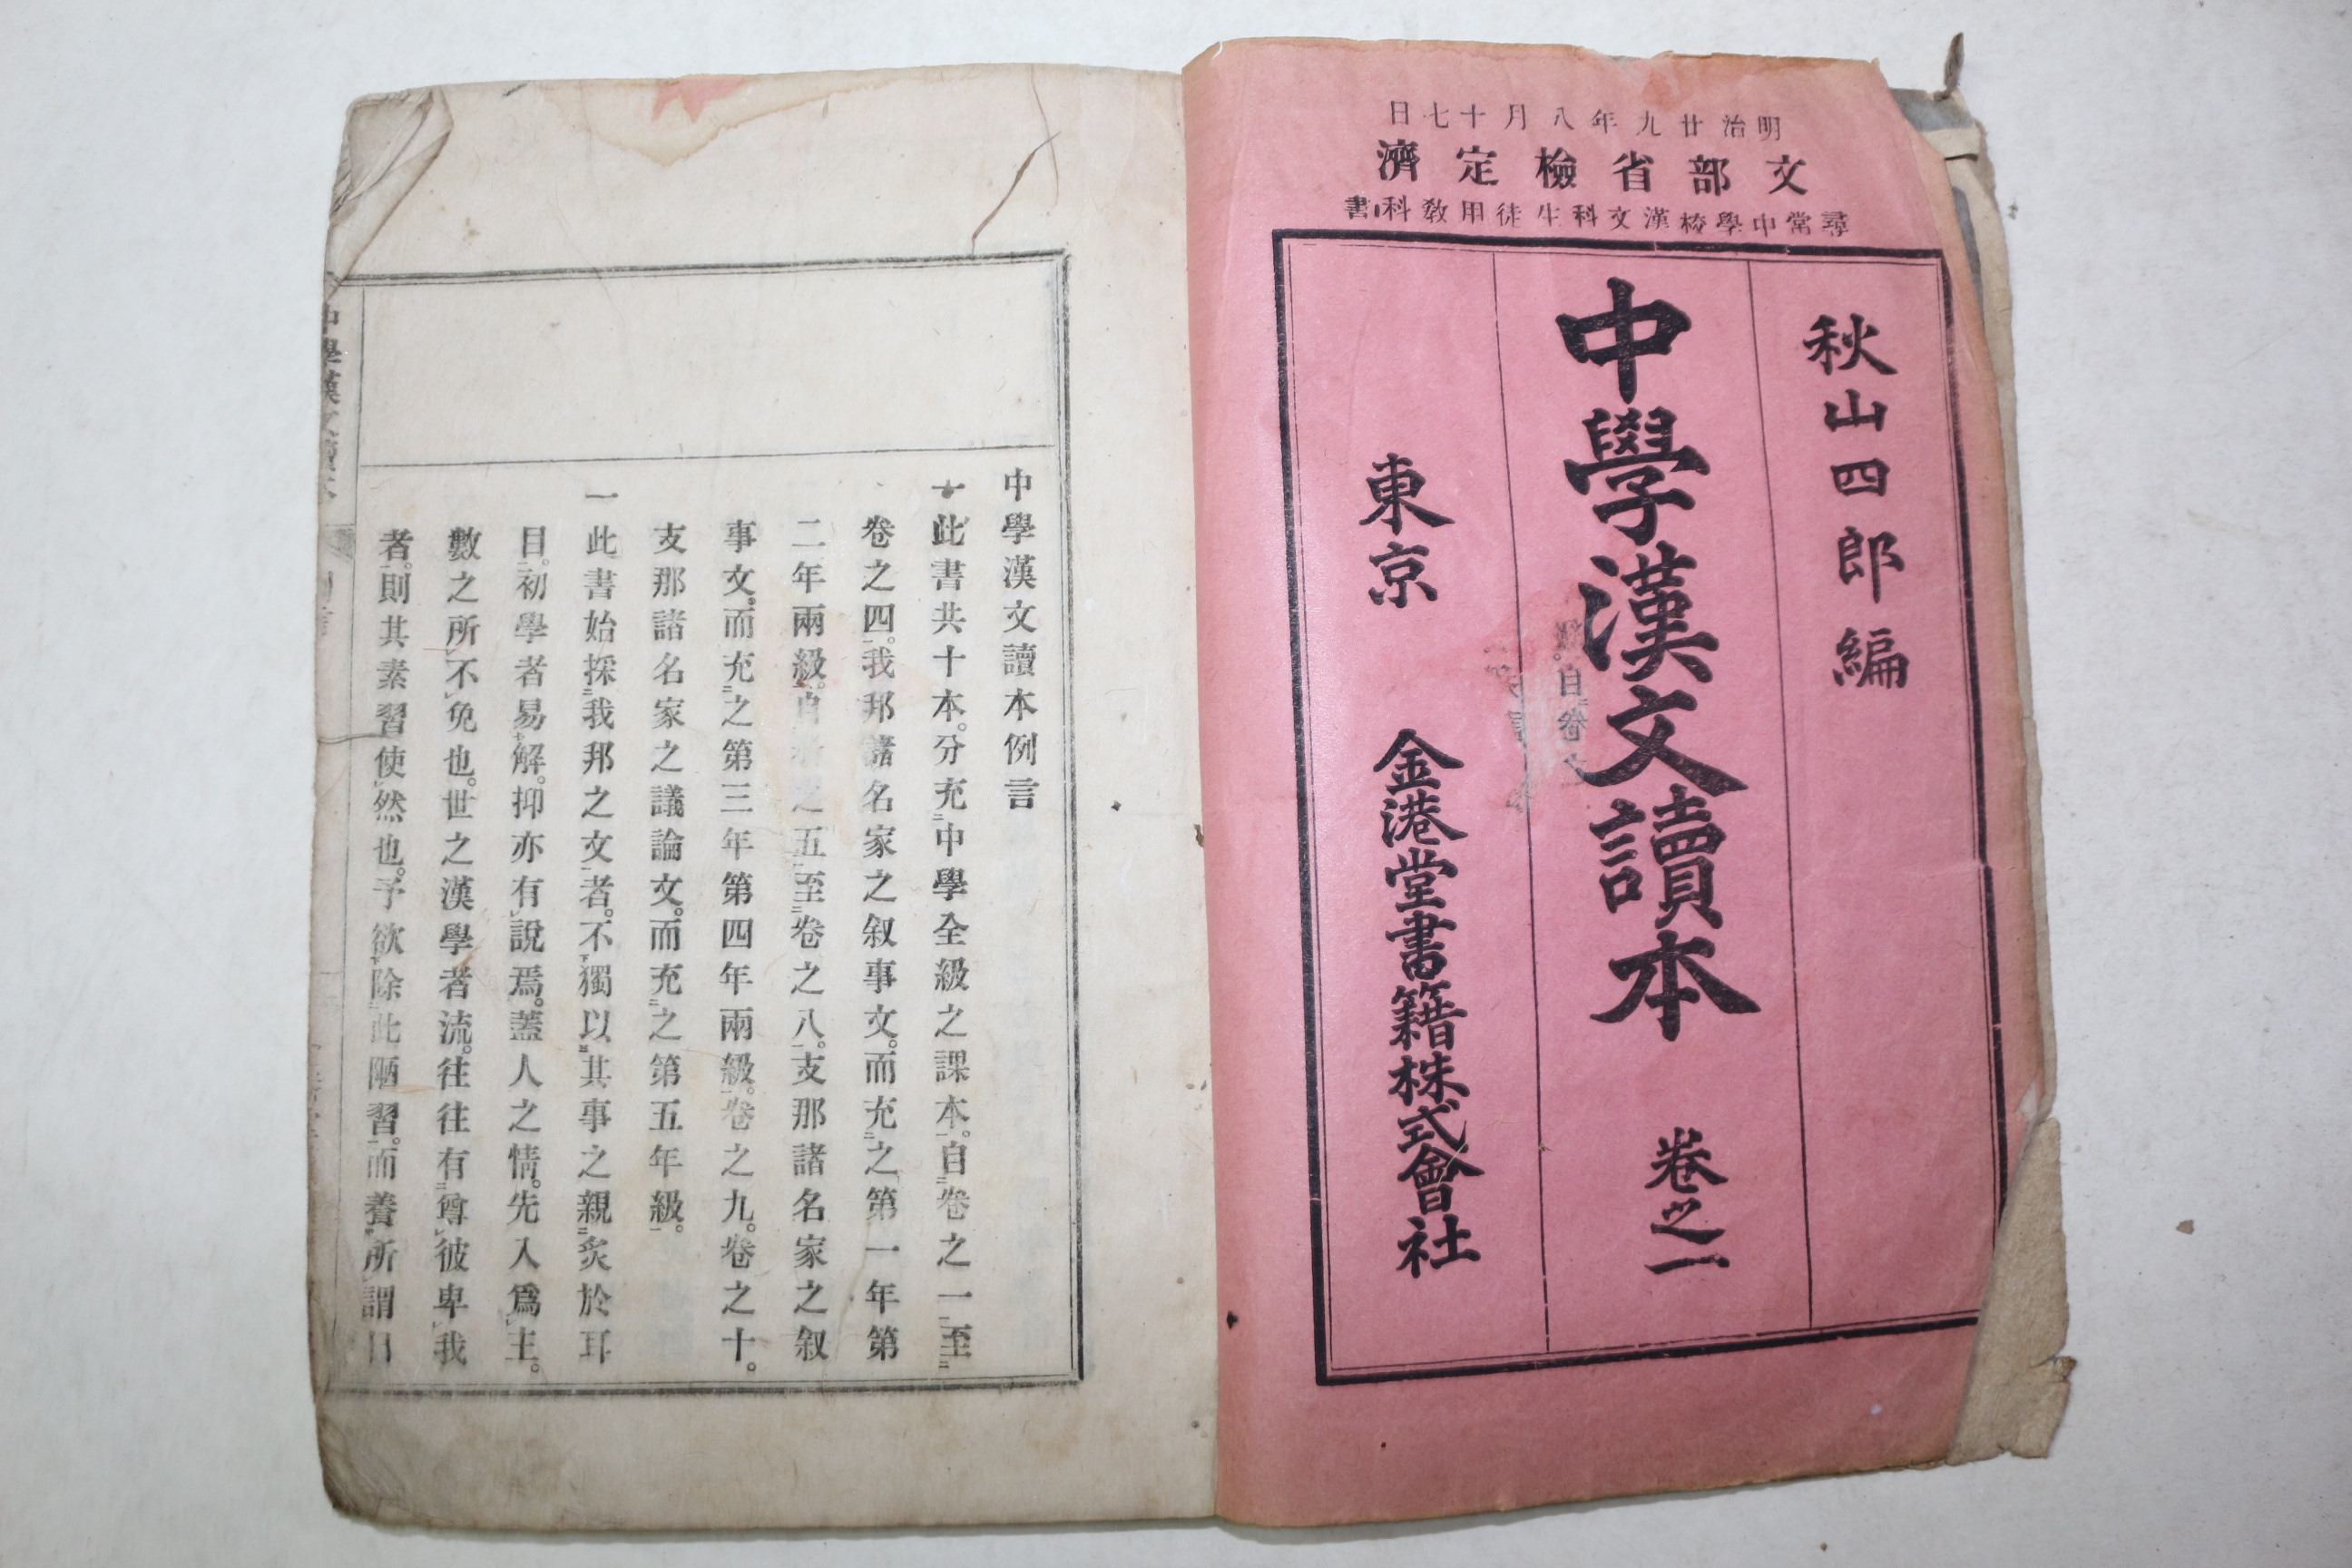 明治廿九年八月十七日
文部省檢定濟
尋常中學校漢文科生徒用敎科書
秋山四郎編
中學漢文讀本 卷之一
東京 金港堂書籍株式會社
中學漢文讀本例言
一此書共十本。分充中學全級之課本。自卷之一至
卷之四。我邦諸名家之叙事文。而充之第一年第
二年兩級。自卷之五至卷之八。支那諸名家之叙
事文。而充之第三年第四年兩級。卷之九。卷之十。
支那諸名家之議論文。而充之第五年級。
一此書始採我邦之文者。不獨以其事之親炙於耳
目。初學者易解。抑亦有說焉。蓋人之情。先入爲主。
數之所不免也。世之漢學者流。往往有尊彼卑我
者。則其素習使然也。予欲除此陋習。而養所謂日
中學漢文讀本
例言